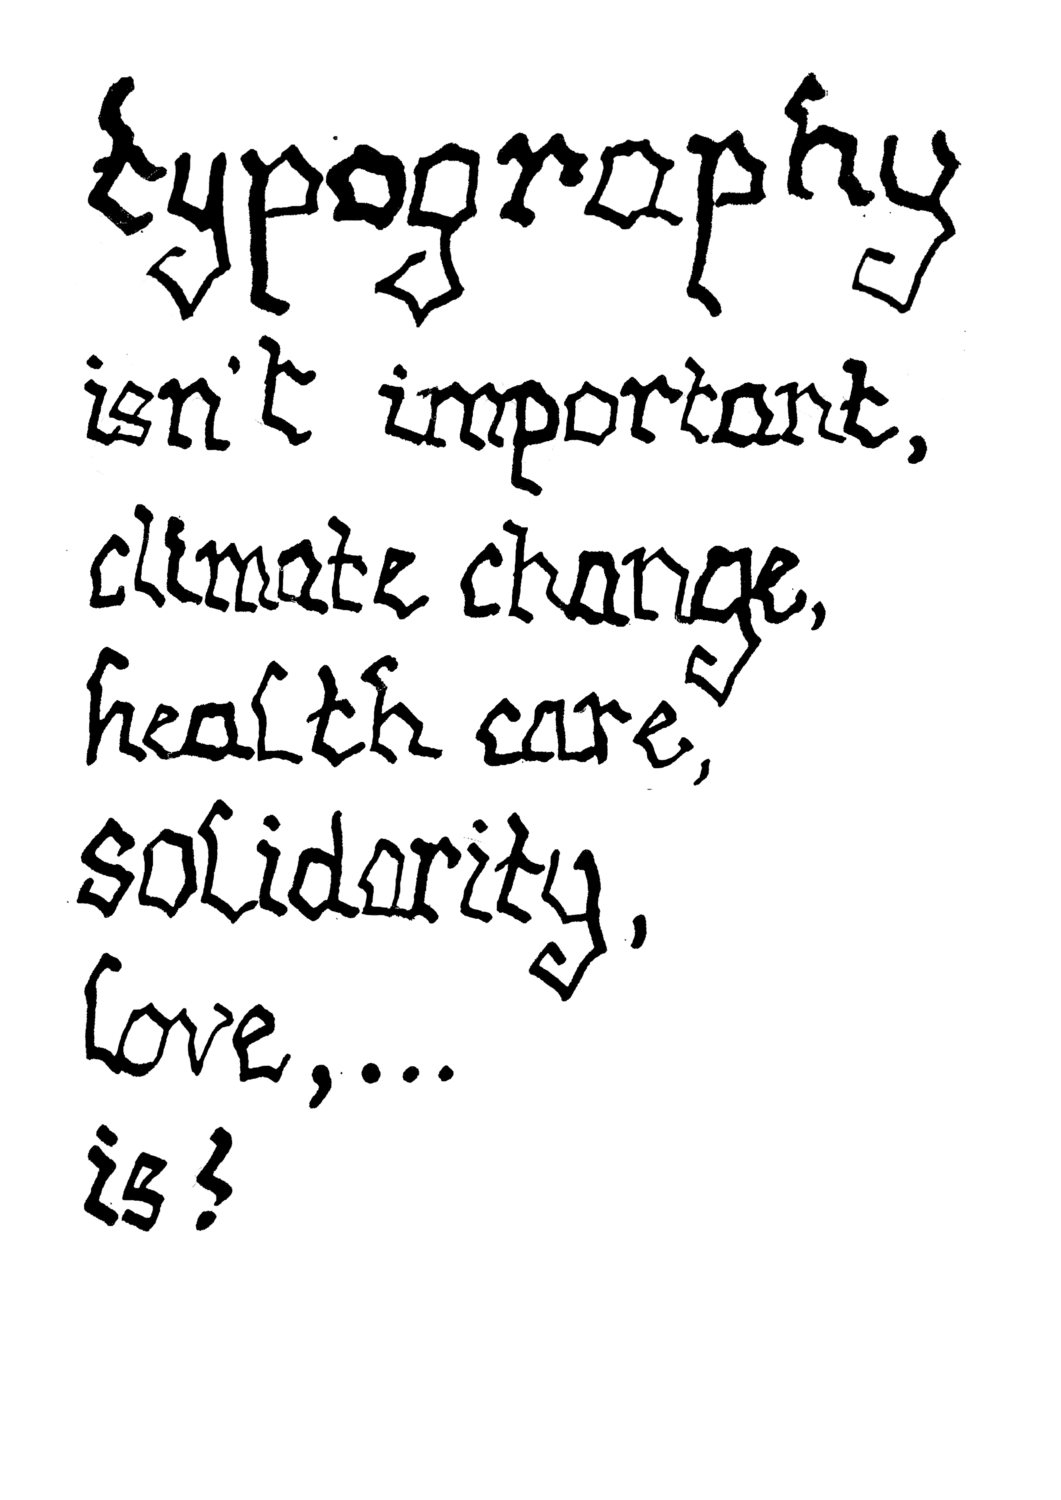 typography
isn't important,
climate change,
health care,
solidarity,
love,...
is?